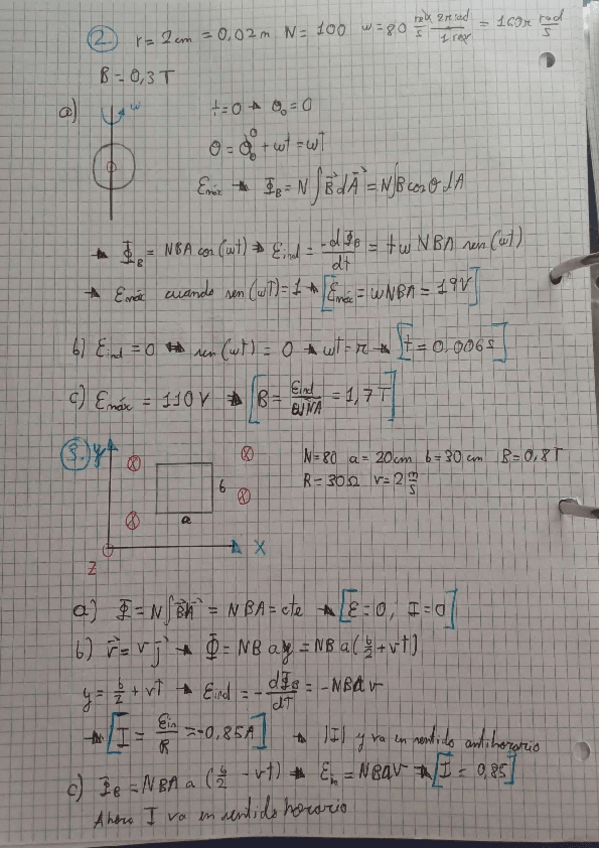 2. r = 2cm = 0,02m N = 100 ω = 80 rev/s 2π rad/1 rev = 160π rad/s
B = 0,3 T
a) ω
t = 0 → θ₀ = 0
θ = θ₀⁰ + ωt = ωt
Ɛmáx → Φ_B = N∫B⃗dA⃗ = N∫B cosθ dA
→ Φ_B = NBA cos(ωt) → Ɛind = -dΦ_B/dt = +ωNBA sen(ωt)
→ Ɛmáx cuando sen(ωt) = 1 → [Ɛmáx = ωNBA = 19V]
b) Ɛind = 0 ↔ sen(ωt) = 0 → ωt = π → [t = 0,006s]
c) Ɛmáx = 110V → [B = Ɛind/ωNA = 1,7T]
3. y
N=80 a = 20cm b = 30cm B = 0,8T
R = 30Ω v = 2 m/s
b
a
x
z
a) Φ = N∫B⃗A⃗ = NBA = cte → [Ɛ = 0, I = 0]
b) v⃗ = v j⃗ → Φ = NB ay = NB a(b/2 + vt)
y = b/2 + vt → Ɛind = -dΦ_B/dt = -NBav
→ [I = Ɛin/R = -0,85A] → |I| y va en sentido antihorario
c) Φ_B = NBA a(b/2 - vt) → Ɛin = NBav → [I = 0,85]
Ahora I va en sentido horario